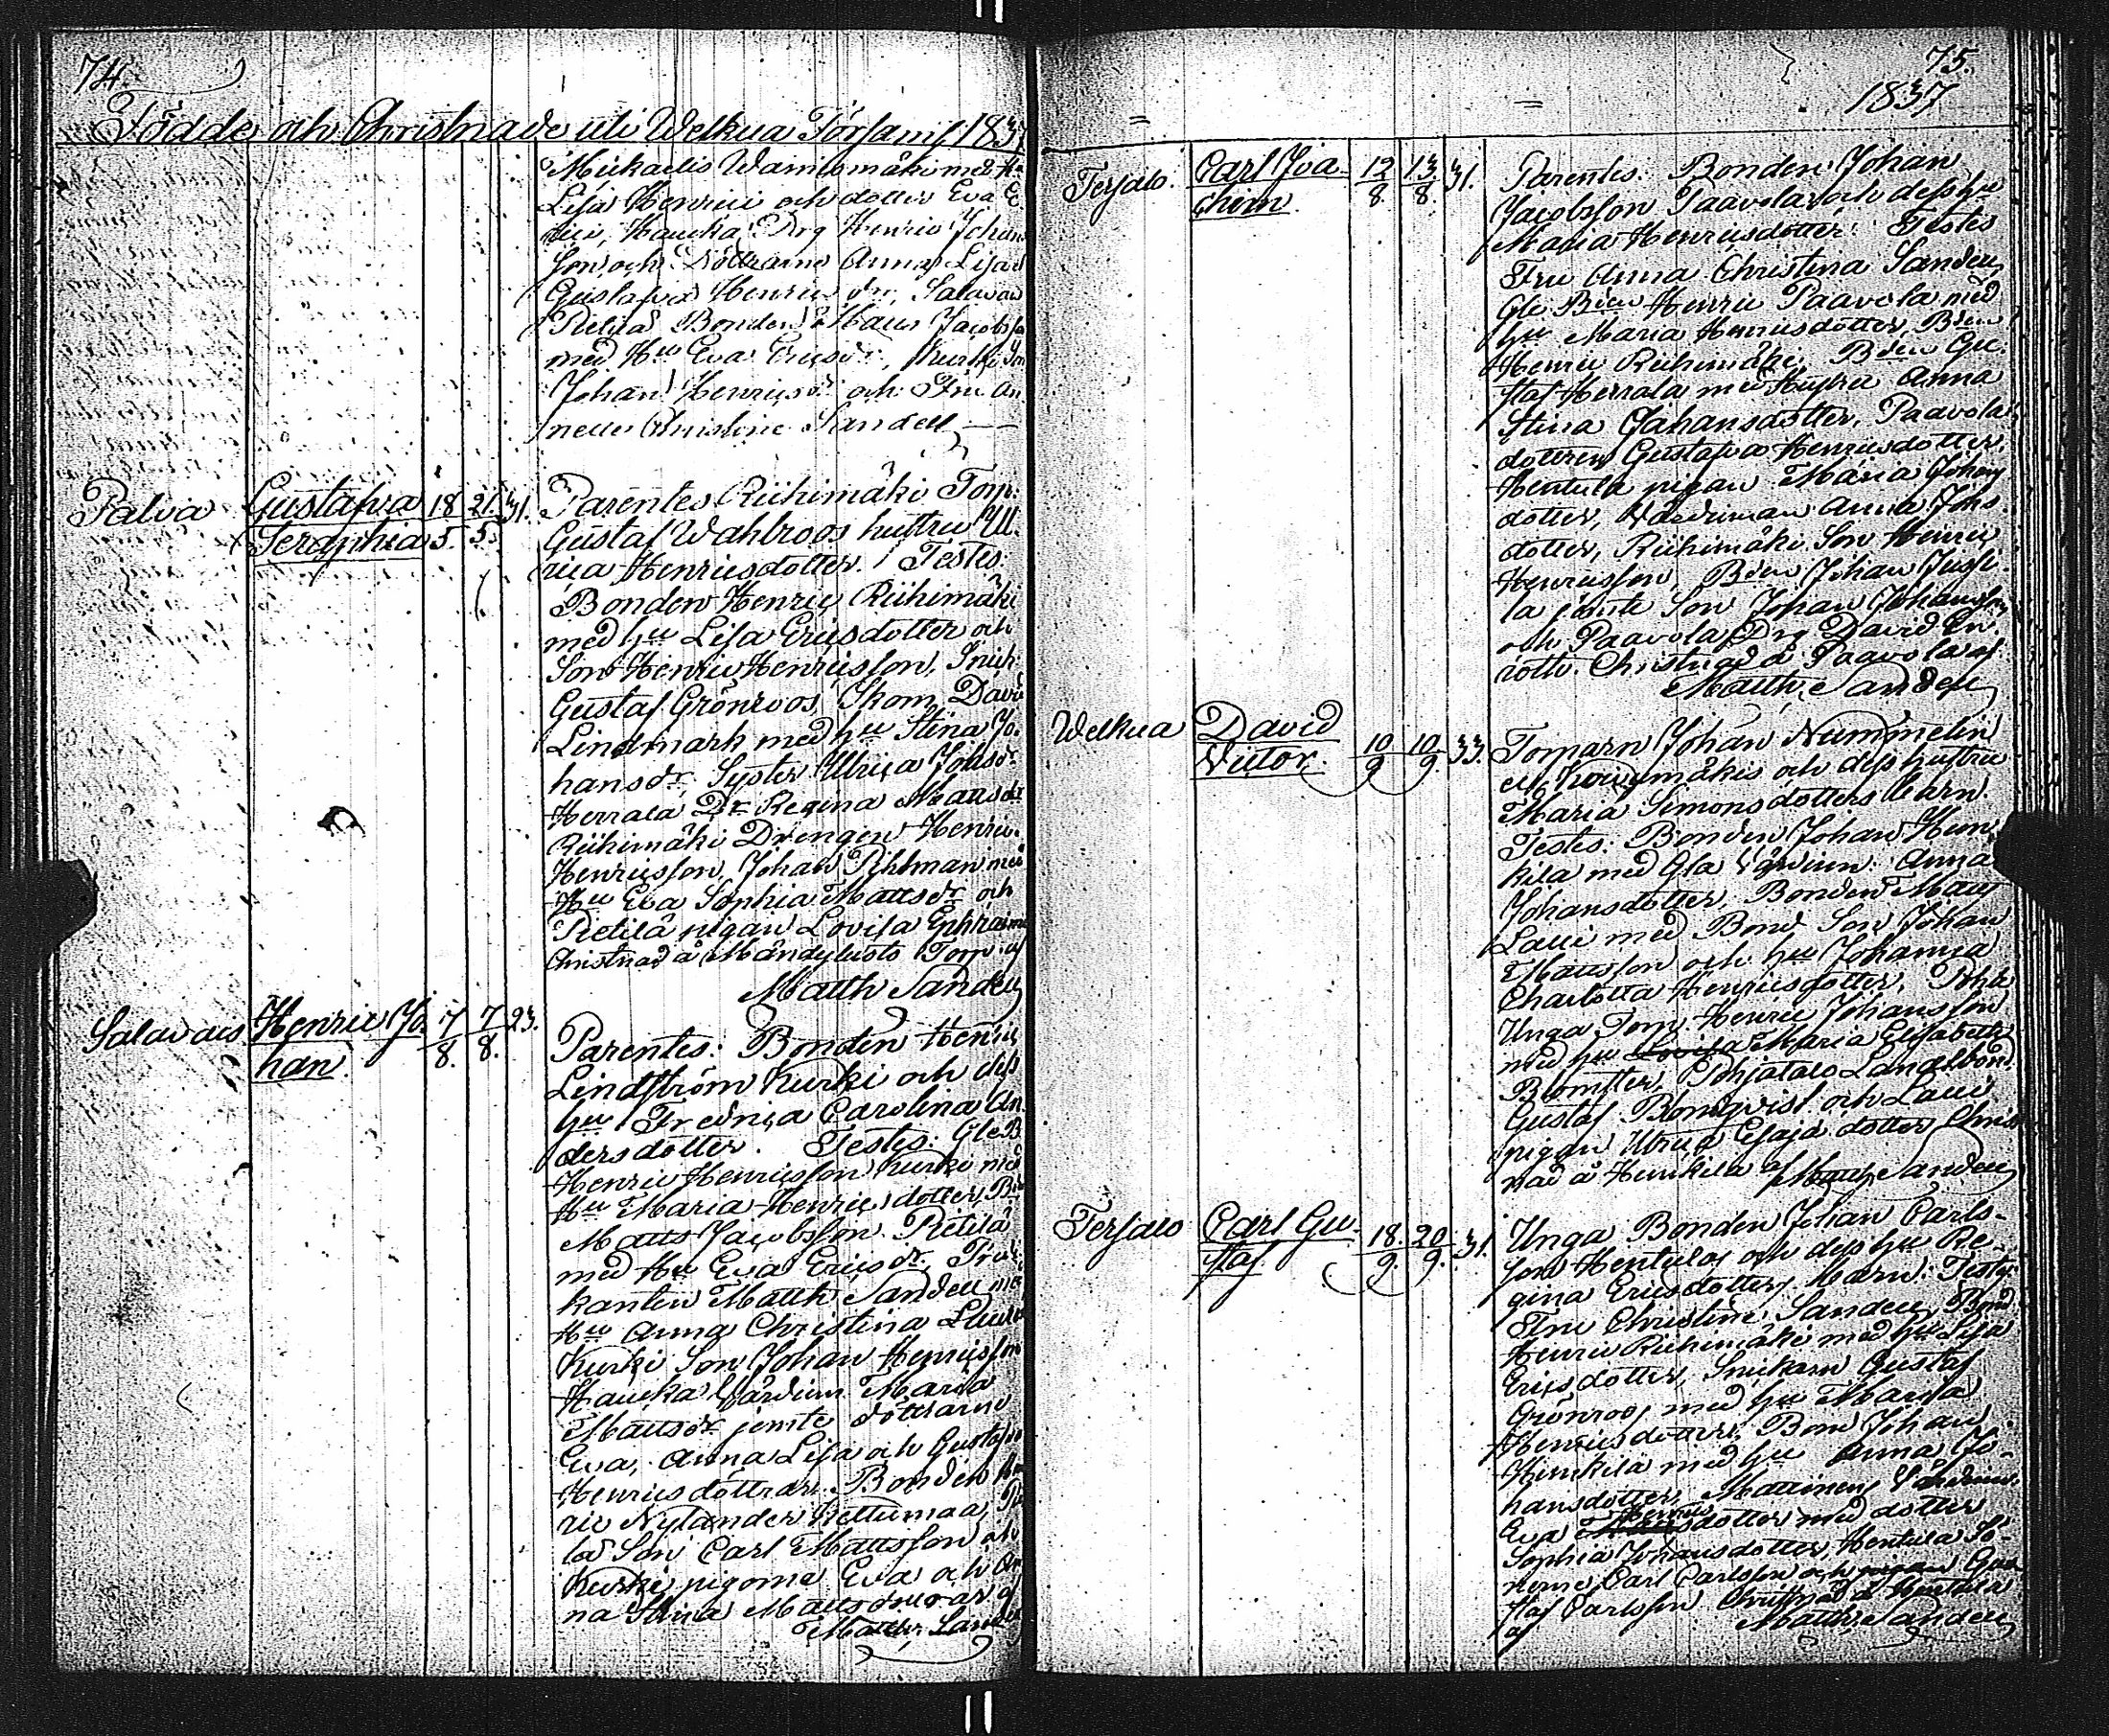 74.
Födde och Christnade uti Welkua Församl 1837
Mickaelis Wainiomäki med
Lisa Henrici och dotter Eva
Haucka Drg Henric Johans
son, och Döttrarne Anna Lisa
Gustafva Henrics dr, Salavais
Pietilä Bonden Matts Jacobsso
med Hu Eva Ericsdr, Kurki Son
Johan Henricss. och Fru An
Christine Sandell
Palva Gustafva 18 21. 31. Parentes Riihimäki Torp.
Seraphia 5. 5. Gustaf Wahlroos hustru Ul.
rica Henricsdotter. Testes:
Bonden Henric Riihimäki
med hu Lisa Ericsdotter och
Son Henric Henricsson, Snick.
Gustaf Grönroos, Skom. Davi
Lindmark med hu Stina Jo.
hansdr, Syster Ulrica Johsdr
Herrala Dr Regina Mattsdr
Riihimäki Drengen Henric
Henricsson, Johan Pihlman med
Hu Eva Sophia Mattsdr och
Pietilä pigan Lovisa Ephraims
Christnad å Torp. af
Matth Sandell
Salavais Henric Jo. 7 7 23.
han. 8. 8. Parentes: Bonden Henric
Lindström Kurki och dess
hu Fredrica Carolina An.
dersdotter. Testes: Gle B.
Henric Henricsson Kurki med
Hu Maria Henricsdotter, B
Matts Jacobsson Pietilä
med Hu Eva Ericsdr, Predi
kanten Matth Sandell med
Hu Anna Christina
Kurki Son Johan Henricsson
Haucka Wärdinn. Maria
Mattsdr jemte döttrarne
Eva, Anna Lisa och Gustafva
Henricsdöttrar. Bonden Hen
ric Nylander Kettumaa,
la Son Carl Mattsson och
Kurki pigorna Eva och An
na Stina Matts döttrar af
Matth. Sandell
75.
1837
Tersalo. Carl Joa. 12 13 31. Parentes: Bonden Johan
chim. 8. 8. Jacobsson Paavola och dess hu
Maria Henricsdotter. Testes
Fru Anna Christina Sandell,
Gle Bden Henric Paavola med
hu Maria Henricsdotter, Bden
Henric Riihimäki, Bden Gu.
staf Herrala med Hustru Anna
Stina Johansdotter, Paavola
dottren Gustafva Henricsdotter.
Hentula pigan Maria Johans
dotter, Anna Johs.
dotter, Riihimäki Son Henric
Henricsson, Bden Johan
la jemte Son Johan Johansson
och Paavola Drg David En.
roth. Christnad å Paavola af
Matth. Sandell
Welkua David 10 10 33. Torparn Johan Nummelin
Victor. 9 9. och dess hustru
Maria Simonsdotters barn.
Testes: Bonden Johan Hun
kila med Gla Wärdinn. Anna
Johansdotter, Bonden Matts
Lauí med Bond Son Johan
Mattsson och hu Johanna
Charlotta Henricsdotter,
Unga Torp Henric Johansson
med hu Maria Elisabeth
Blomster, Landtbond.
Gustaf Blomqvist och Laui
pigan Ulrica Esajæ dotter Christ
nad å Hunkila af Matth. Sandell
Tersalo Carl Gu. 18. 20 31. Unga Bonden Johan Carls-
staf. 9. 9. son Hentula och dess hu Re-
gina Ericsdotters barn. Testes:
Fru Christine Sandell, Bond
Henric Riihimäki med hu Lisa
Ericsdotter, Snickarn Gustaf
Grönroos med hu Maria
Henricsdotter, Bond Johan
Hunkila med hu Anna Jo-
hansdotter, Mattinen Wärdinn.
Eva Henricsdotter med dotter
Sophia Johansdotter, Hentula Sö-
nerne Carl Carlsson och Gus
staf Carlsson. Christnad å Hentula
af Matth. Sandell